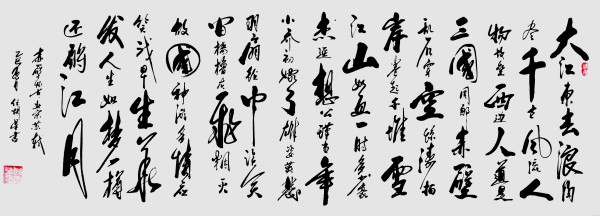 大江東去浪淘
盡千古風流人
物故壘西邊人道是
三國周郎赤壁
亂石穿空驚濤拍
岸卷起千堆雪
江山如畫一時多少豪
傑遥想公瑾當年
小喬初嫁了雄姿英發
羽扇綸巾談笑
間檣櫓灰飛煙滅
故國神游多情應
笑我早生華
髮人生如夢一樽
還酹江月
赤壁懷古